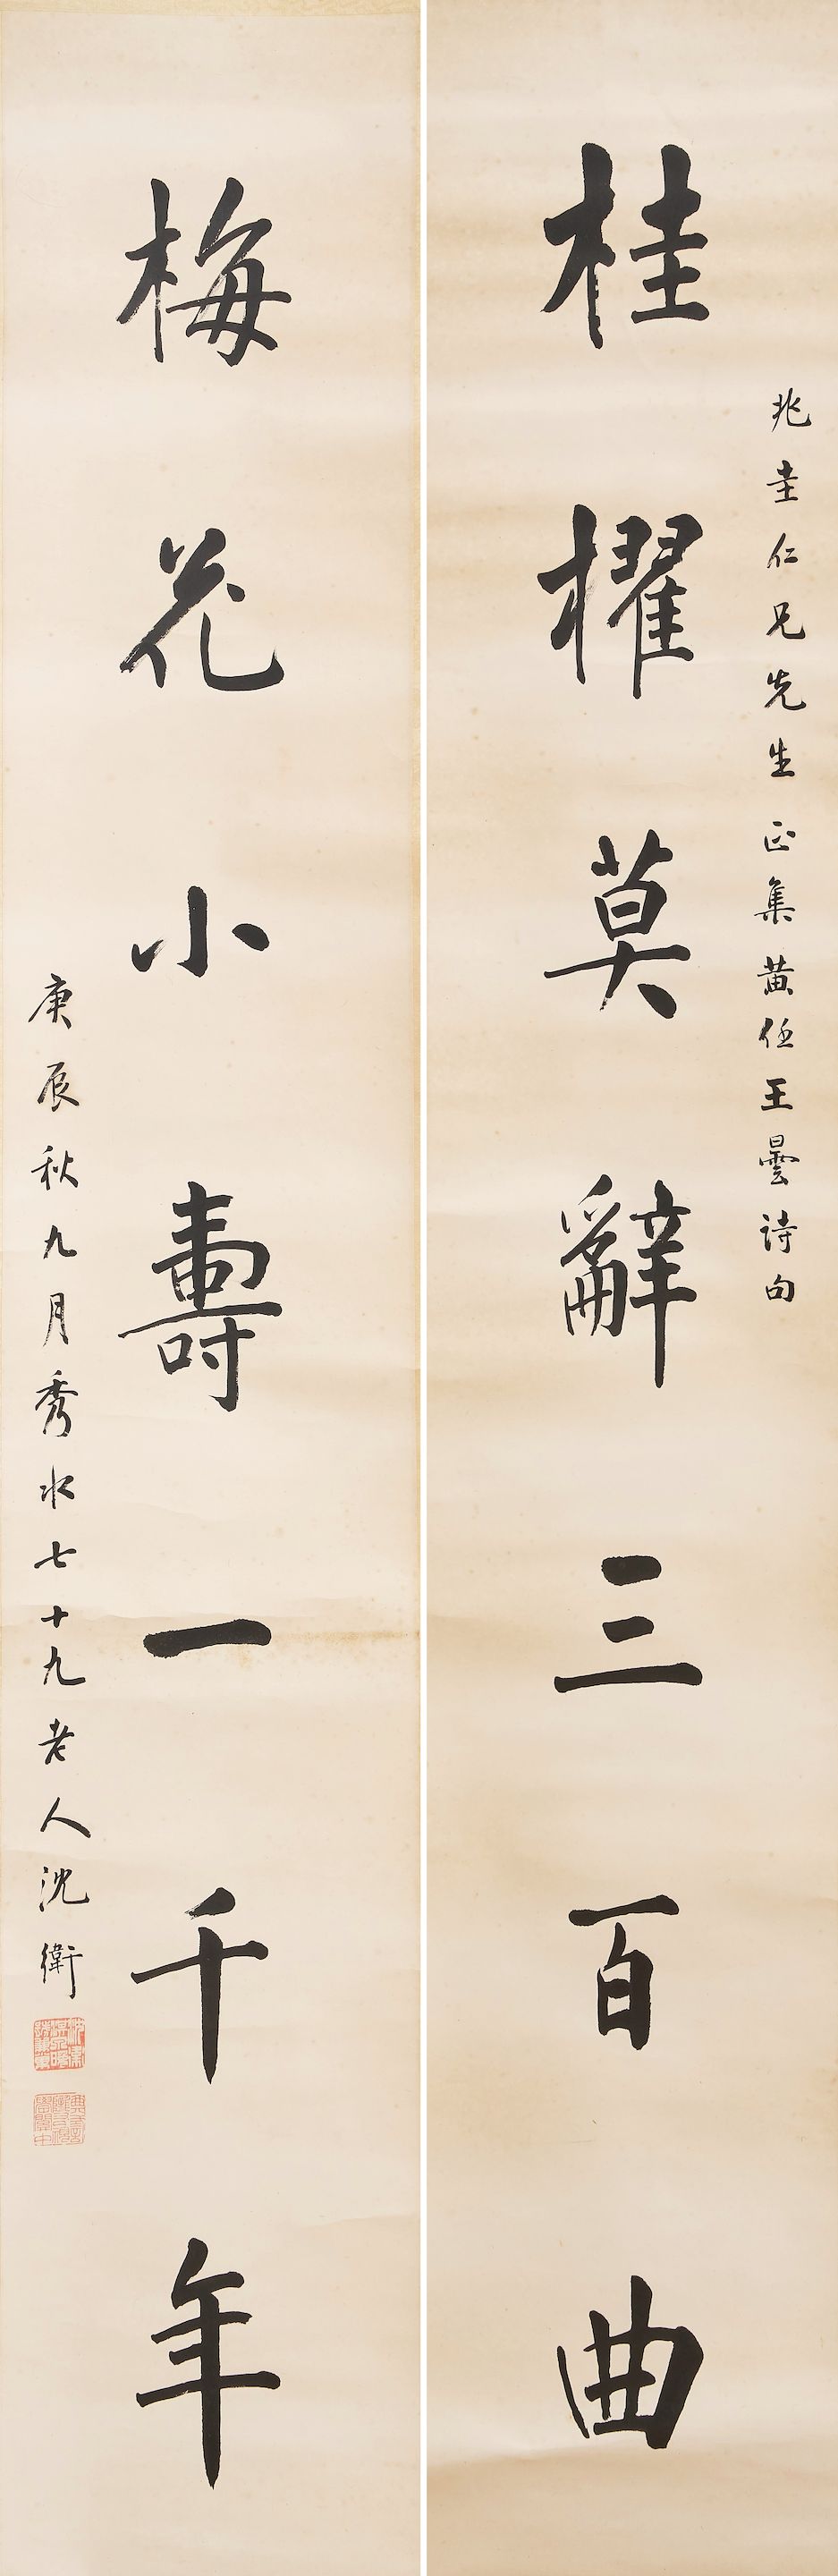 兆圭仁兄先生正集黄任王曇詩句
桂櫂莫辭三百曲
梅花小壽一千年
庚辰秋九月秀水七十九老人沈衛